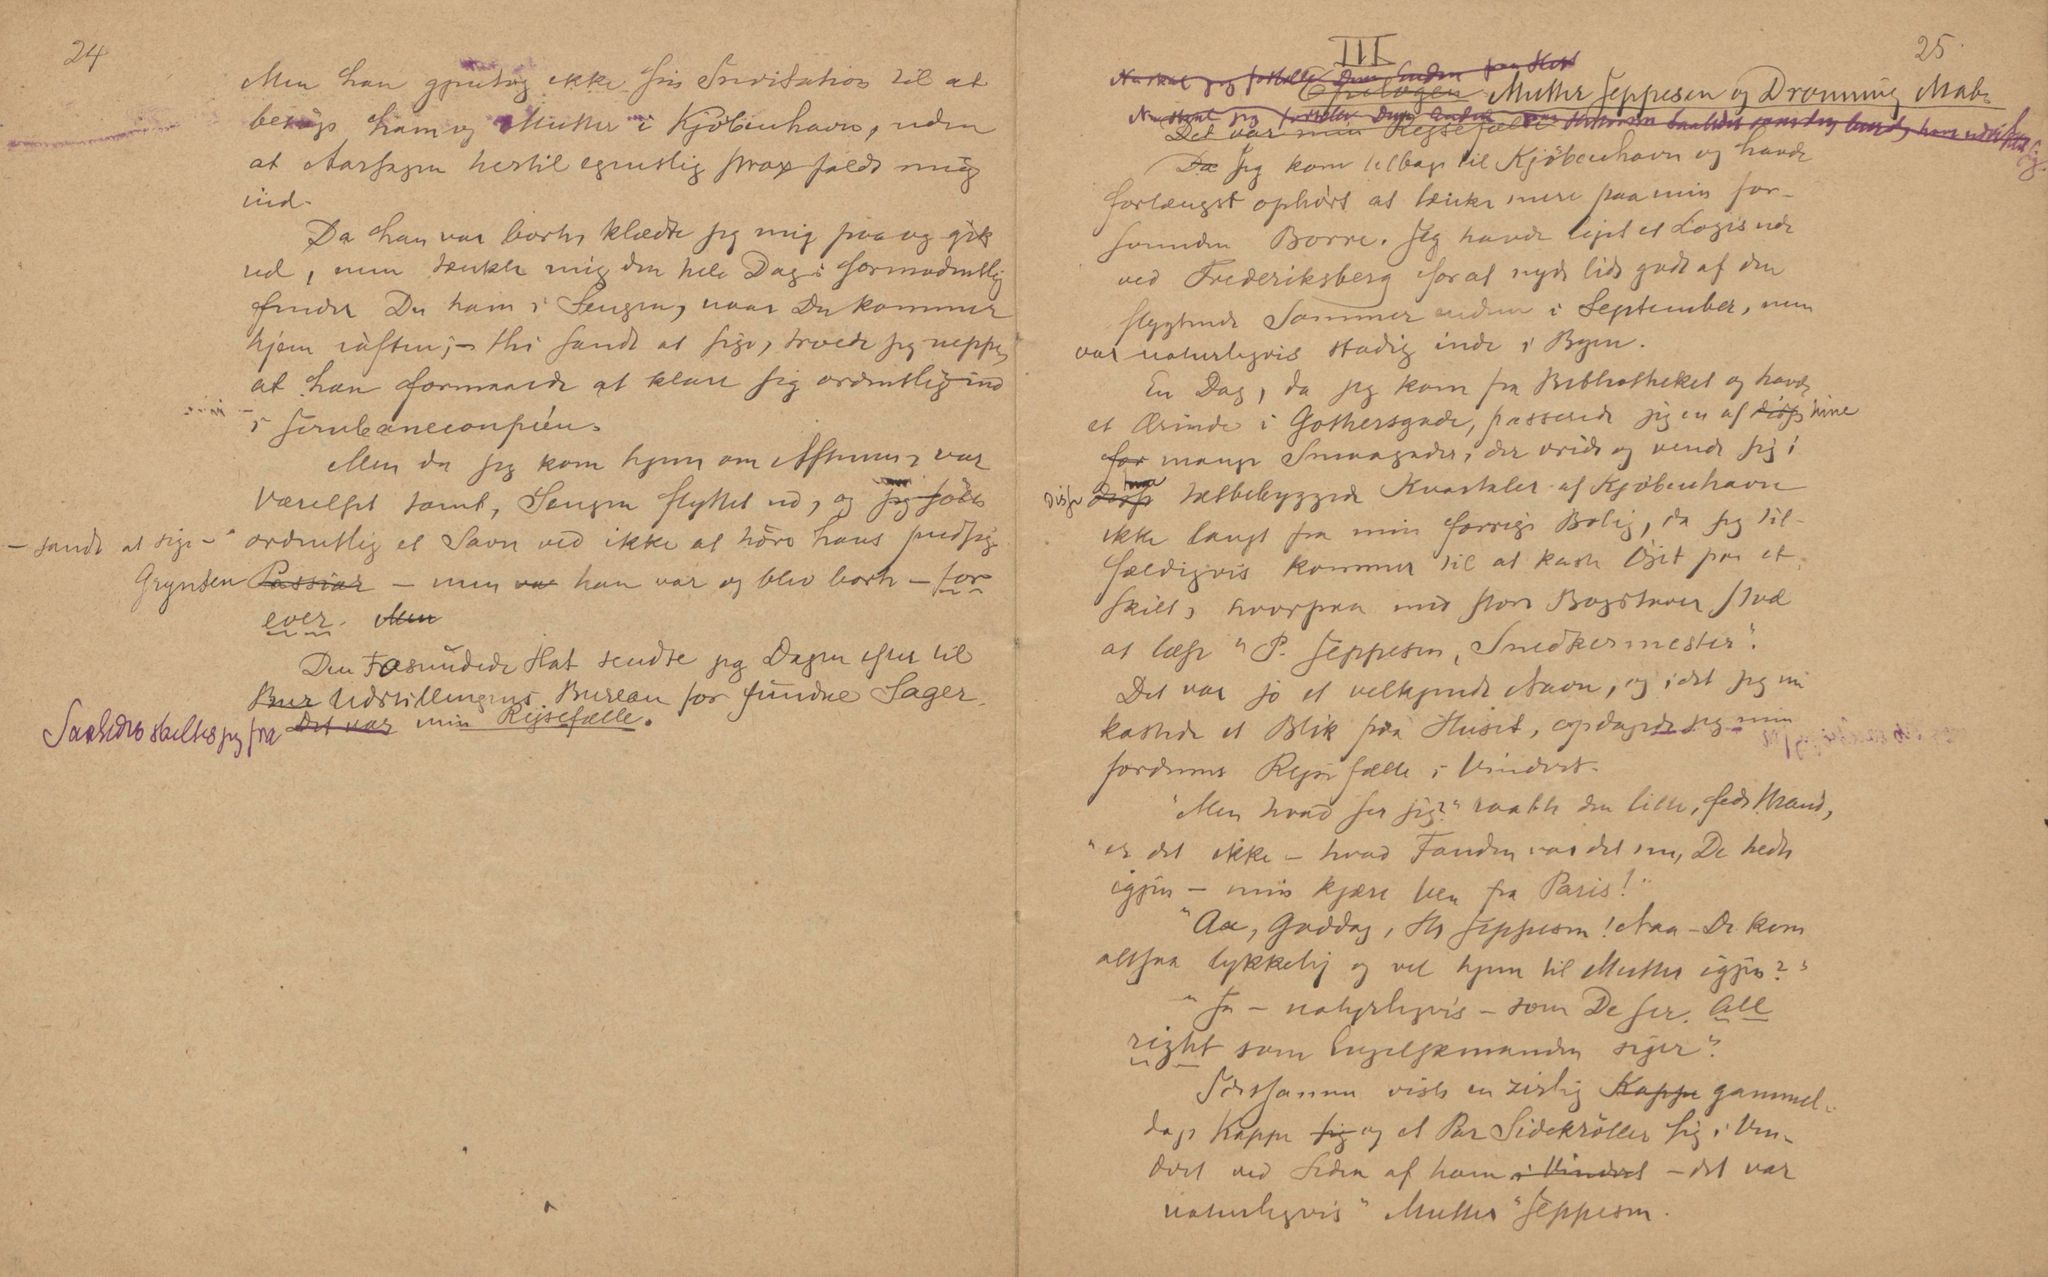 24
Men han gjentog ikke sin Invitation til at
besøge ham og Mutter i Kjöbenhavn, uden
at Aarsagen hertil egentlig strax faldt mig
ind.
Da han var borte, klædte jeg mig paa og gik
ud, men tænkte mig den hele Dag: formodentlig
finder Du ham i Sengen, naar Du kommer
hjem iaften; – thi sandt at sige, troede jeg neppe,
at han formaaede at klare sig ordentlig ind
i Jernbanecoupéen.
Men da jeg kom hjem om Aftenen, var
Værelset tomt, Sengen flyttet ud, og jeg følte
– sandt at sige – ordentlig et Savn ved ikke at høre hans pudsige
Grynten Passiar – men var han var og blev borte – for
ever. Men
Den Facsinüdede Hat sendte jeg Dagen efter til
Bur Udstillingens Bureau for fundne Sager.
Saaledes skiltes jeg fra Det var min Rejsefælle.
25
III
Nu skal jeg fortælle Dem Enden paa Hist
Epilogen Mutter Jeppesen og Dronning Mab.
Nu skal jeg fortælle Dem Enden paa Historien
Det var min Rejsefælle
Da Jeg kom tilbage til Kjöbenhavn og havde
forlængst ophört at tænke mere paa min for-
svundne Borre. Jeg havde lejet et Logis ude
ved Frederiksberg for at nyde lidt godt af den
flygtende Sommer endnu i September, men
var naturligvis stadig inde i Byen.
En Dag, da jeg kom fra Bibliotheket og havde
et Ærinde i Gothersgade, passerede jeg en af disse hine
for mange Smaagader, der vride og vende sig i
disse disse tætbebyggede Kvarterer af Kjöbenhavn
ikke langt fra min forrige Bolig, da jeg til-
fældigvis kommer til at kaste Öjet paa et
Skilt, hvorpaa med store Bogstaver stod
at læse "P. Jeppesen, Snedkermester".
Det var jo et velkjendt Navn, og idet jeg nu
kastede et Blik paa Huset, opdagede jeg min
fordums Rejsefælle i Vinduet.
"Men hvad ser jeg?" raabte den lille, fede Mand,
"er det ikke – hvad Fanden var det nu, De hedte
igjen – min kjære Ven fra Paris!"
"Aa, Goddag, Hr Jeppesen! Naa – De kom
altsaa lykkelig og vel hjem til Mutter igjen?"
"Ja – naturligvis – som De ser. All
right som Engelskmanden siger".
I det samme viste en zirlig Kappe gammel-
dags Kappe sig og et Par Sidekröller sig i Vin-
duet ved Siden af ham i Vinduet – det var
naturligvis "Mutter" Jeppesen.